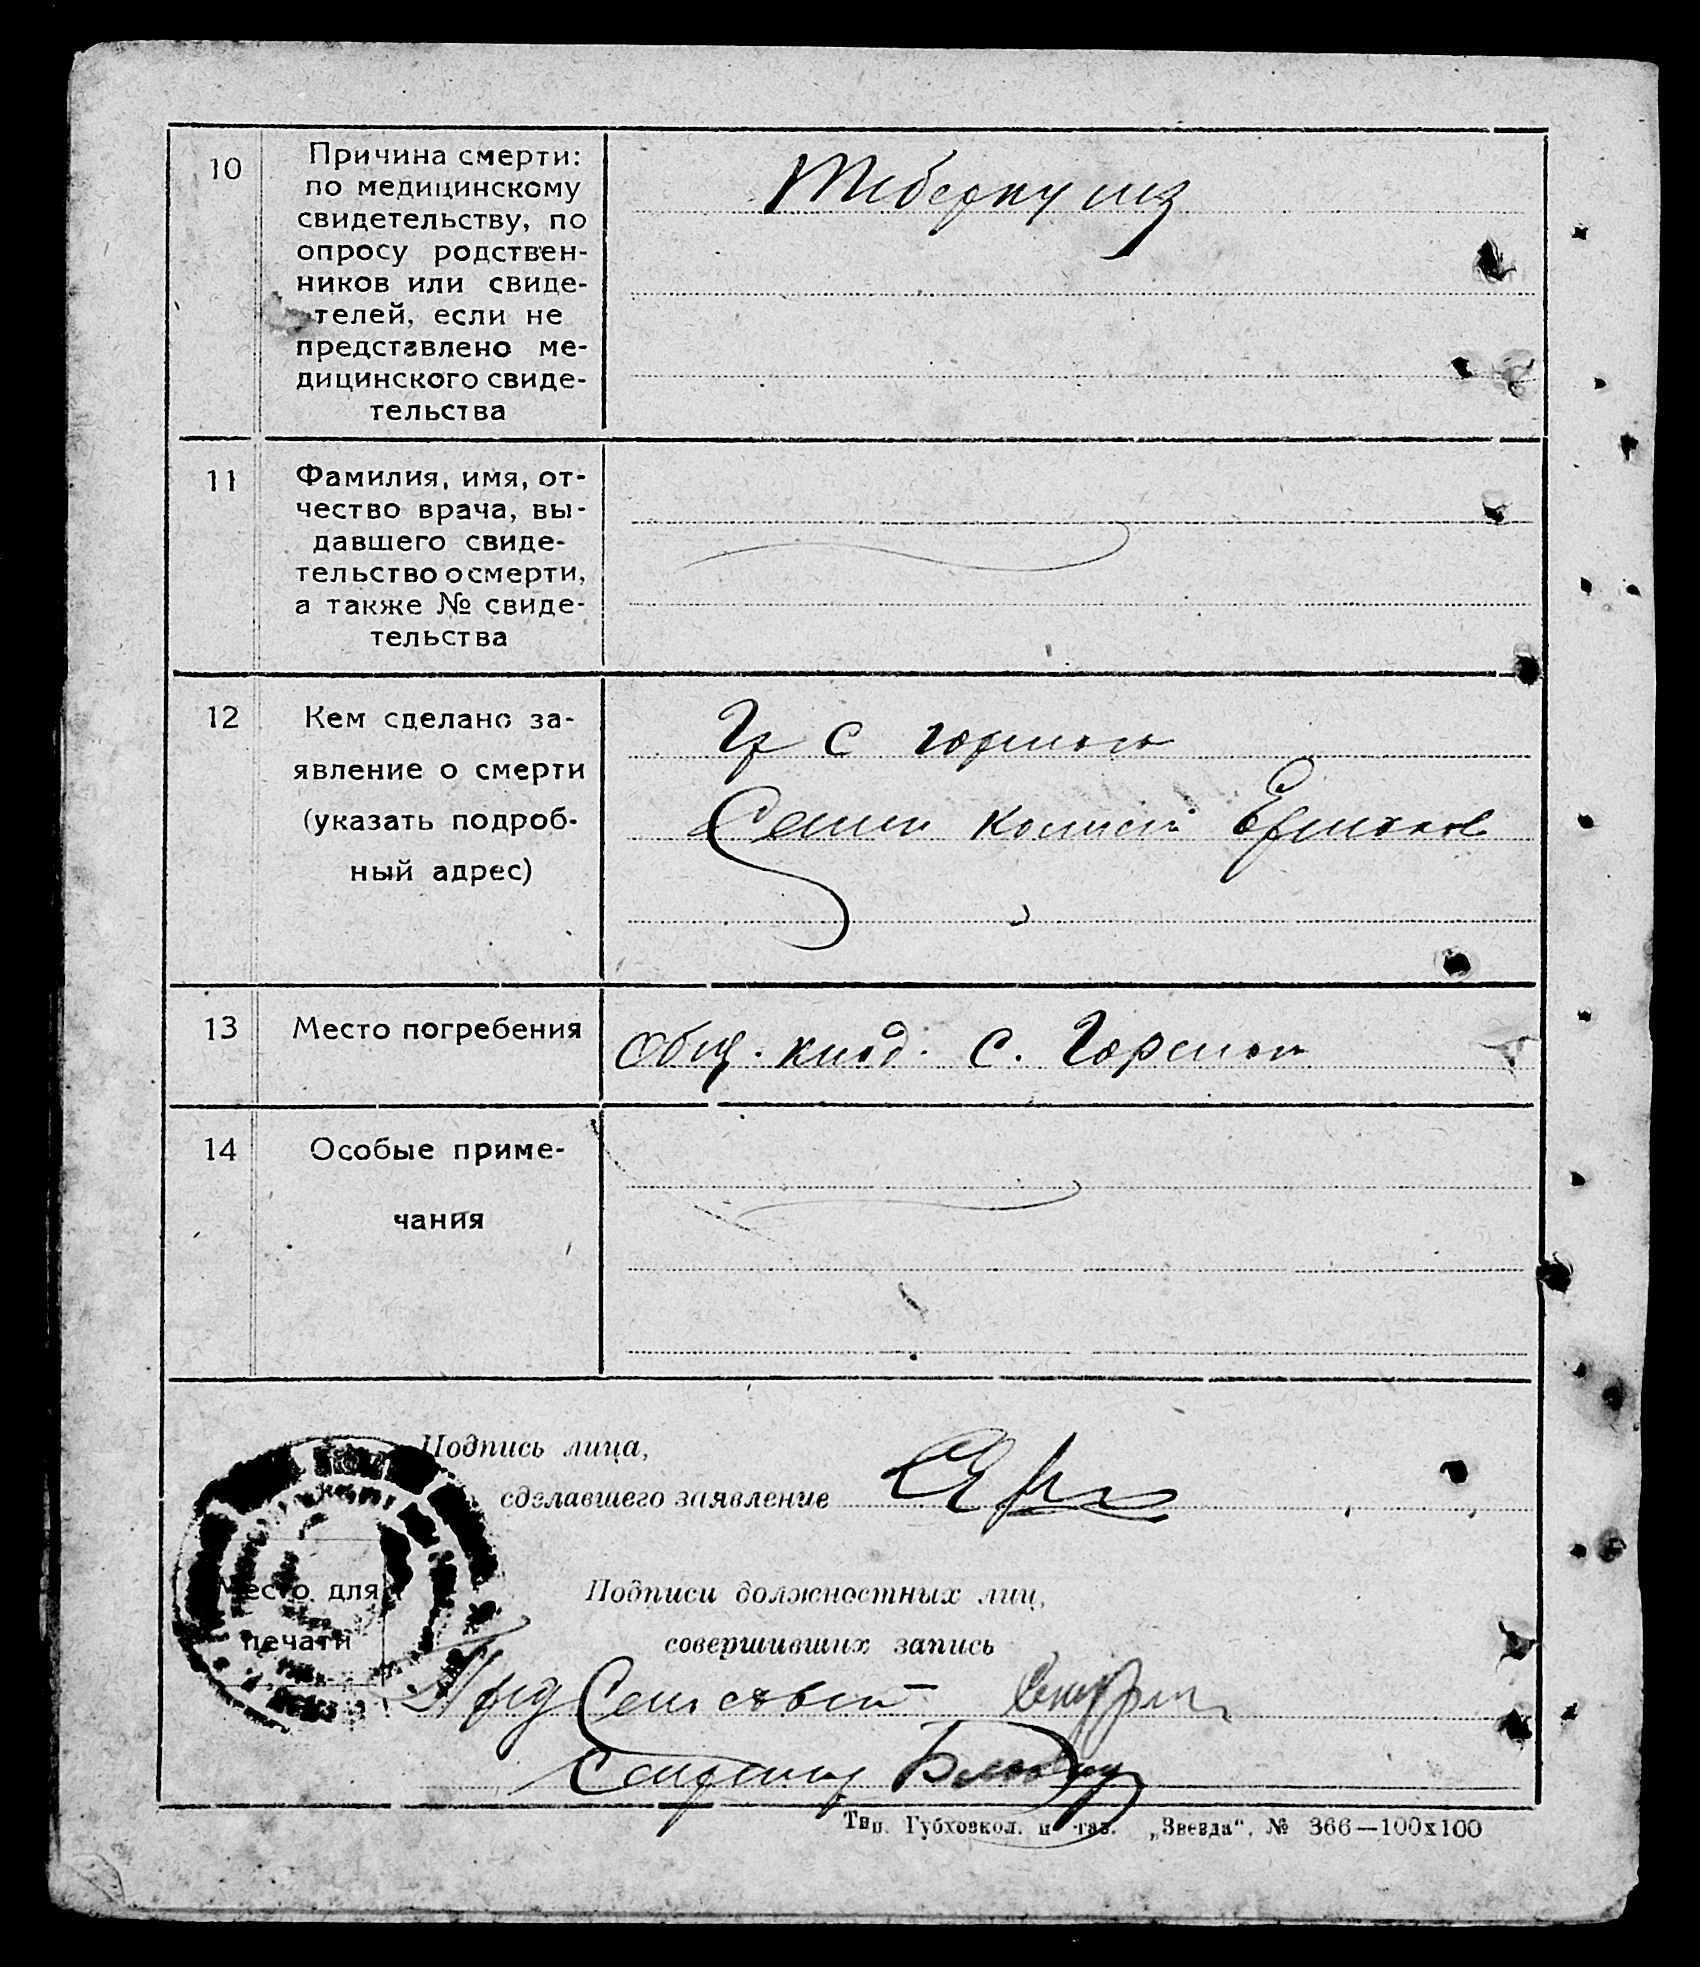 10 Причина смерти:
по медицинскому
свидетельству, по
опросу родствен-
ников или свиде-
телей, если не
представлено ме-
дицинского свиде-
тельства
Туберкулиз
11 Фамилия, имя, от-
чество врача, вы-
давшего свиде-
тельство о смерти,
а также № свиде-
тельства
12 Кем сделано за-
явление о смерти
(указать подроб-
ный адрес)
Гр с Горского
13 Место погребения
Общ. клад. с.
14 Особые приме-
чания
Подпись лица,
сделавшего заявление
Место для
печати
Подписи должностных лиц,
совершивших запись
Пред Сельсовета
Секретарь
Тип. Губхозкол. и газ. „Звезда“, № 366—100х100